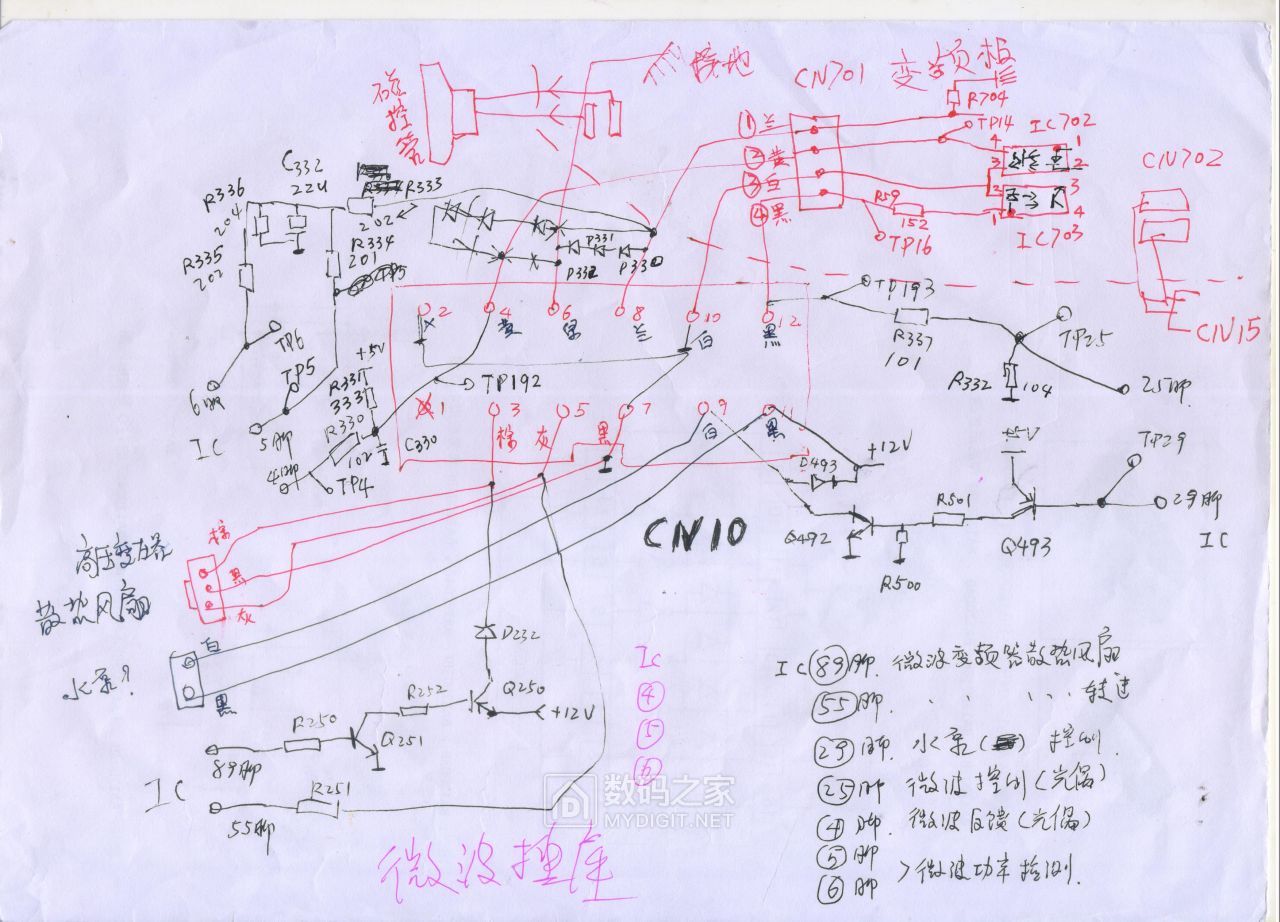 磁控管
接地
CN701 变频板
R704
TP14
IC702
4 1
3 2
①兰
②黄
③白
④黑
R59
152
TP16
2 3
1 4
IC703
CN702
CN15
C332
22U
R336
204
R333
202
R335
202
R334
201
TP5
P331
P332
P330
TP6
TP5
6脚
IC 5脚
+5V
R331
333
R330
102
C330
4脚
TP4
2 4 6 8 10 12
黄 黑 兰 白 黑
TP192
1 3 5 7 9 11
棕 灰 黑 白 黑
TP193
R337
101
TP25
R332
104
25脚
+12V
D493
CN10
Q492
R500
R501
+5V
Q493
TP29
29脚
IC
高压变压器
散热风扇
棕
黑
灰
水泵?
白
黑
D232
Q250
+12V
R252
R250
Q251
89脚
IC
R251
55脚
IC
④
⑤
⑥
IC 89脚 微波变频器散热风扇
55脚 、 、、、 转速
29脚 水泵( ) 控制
25脚 微波控制(光偶)
④脚 微波反馈(光偶)
⑤脚
⑥脚 >微波功率检测.
数码之家
MYDIGIT.NET
微波